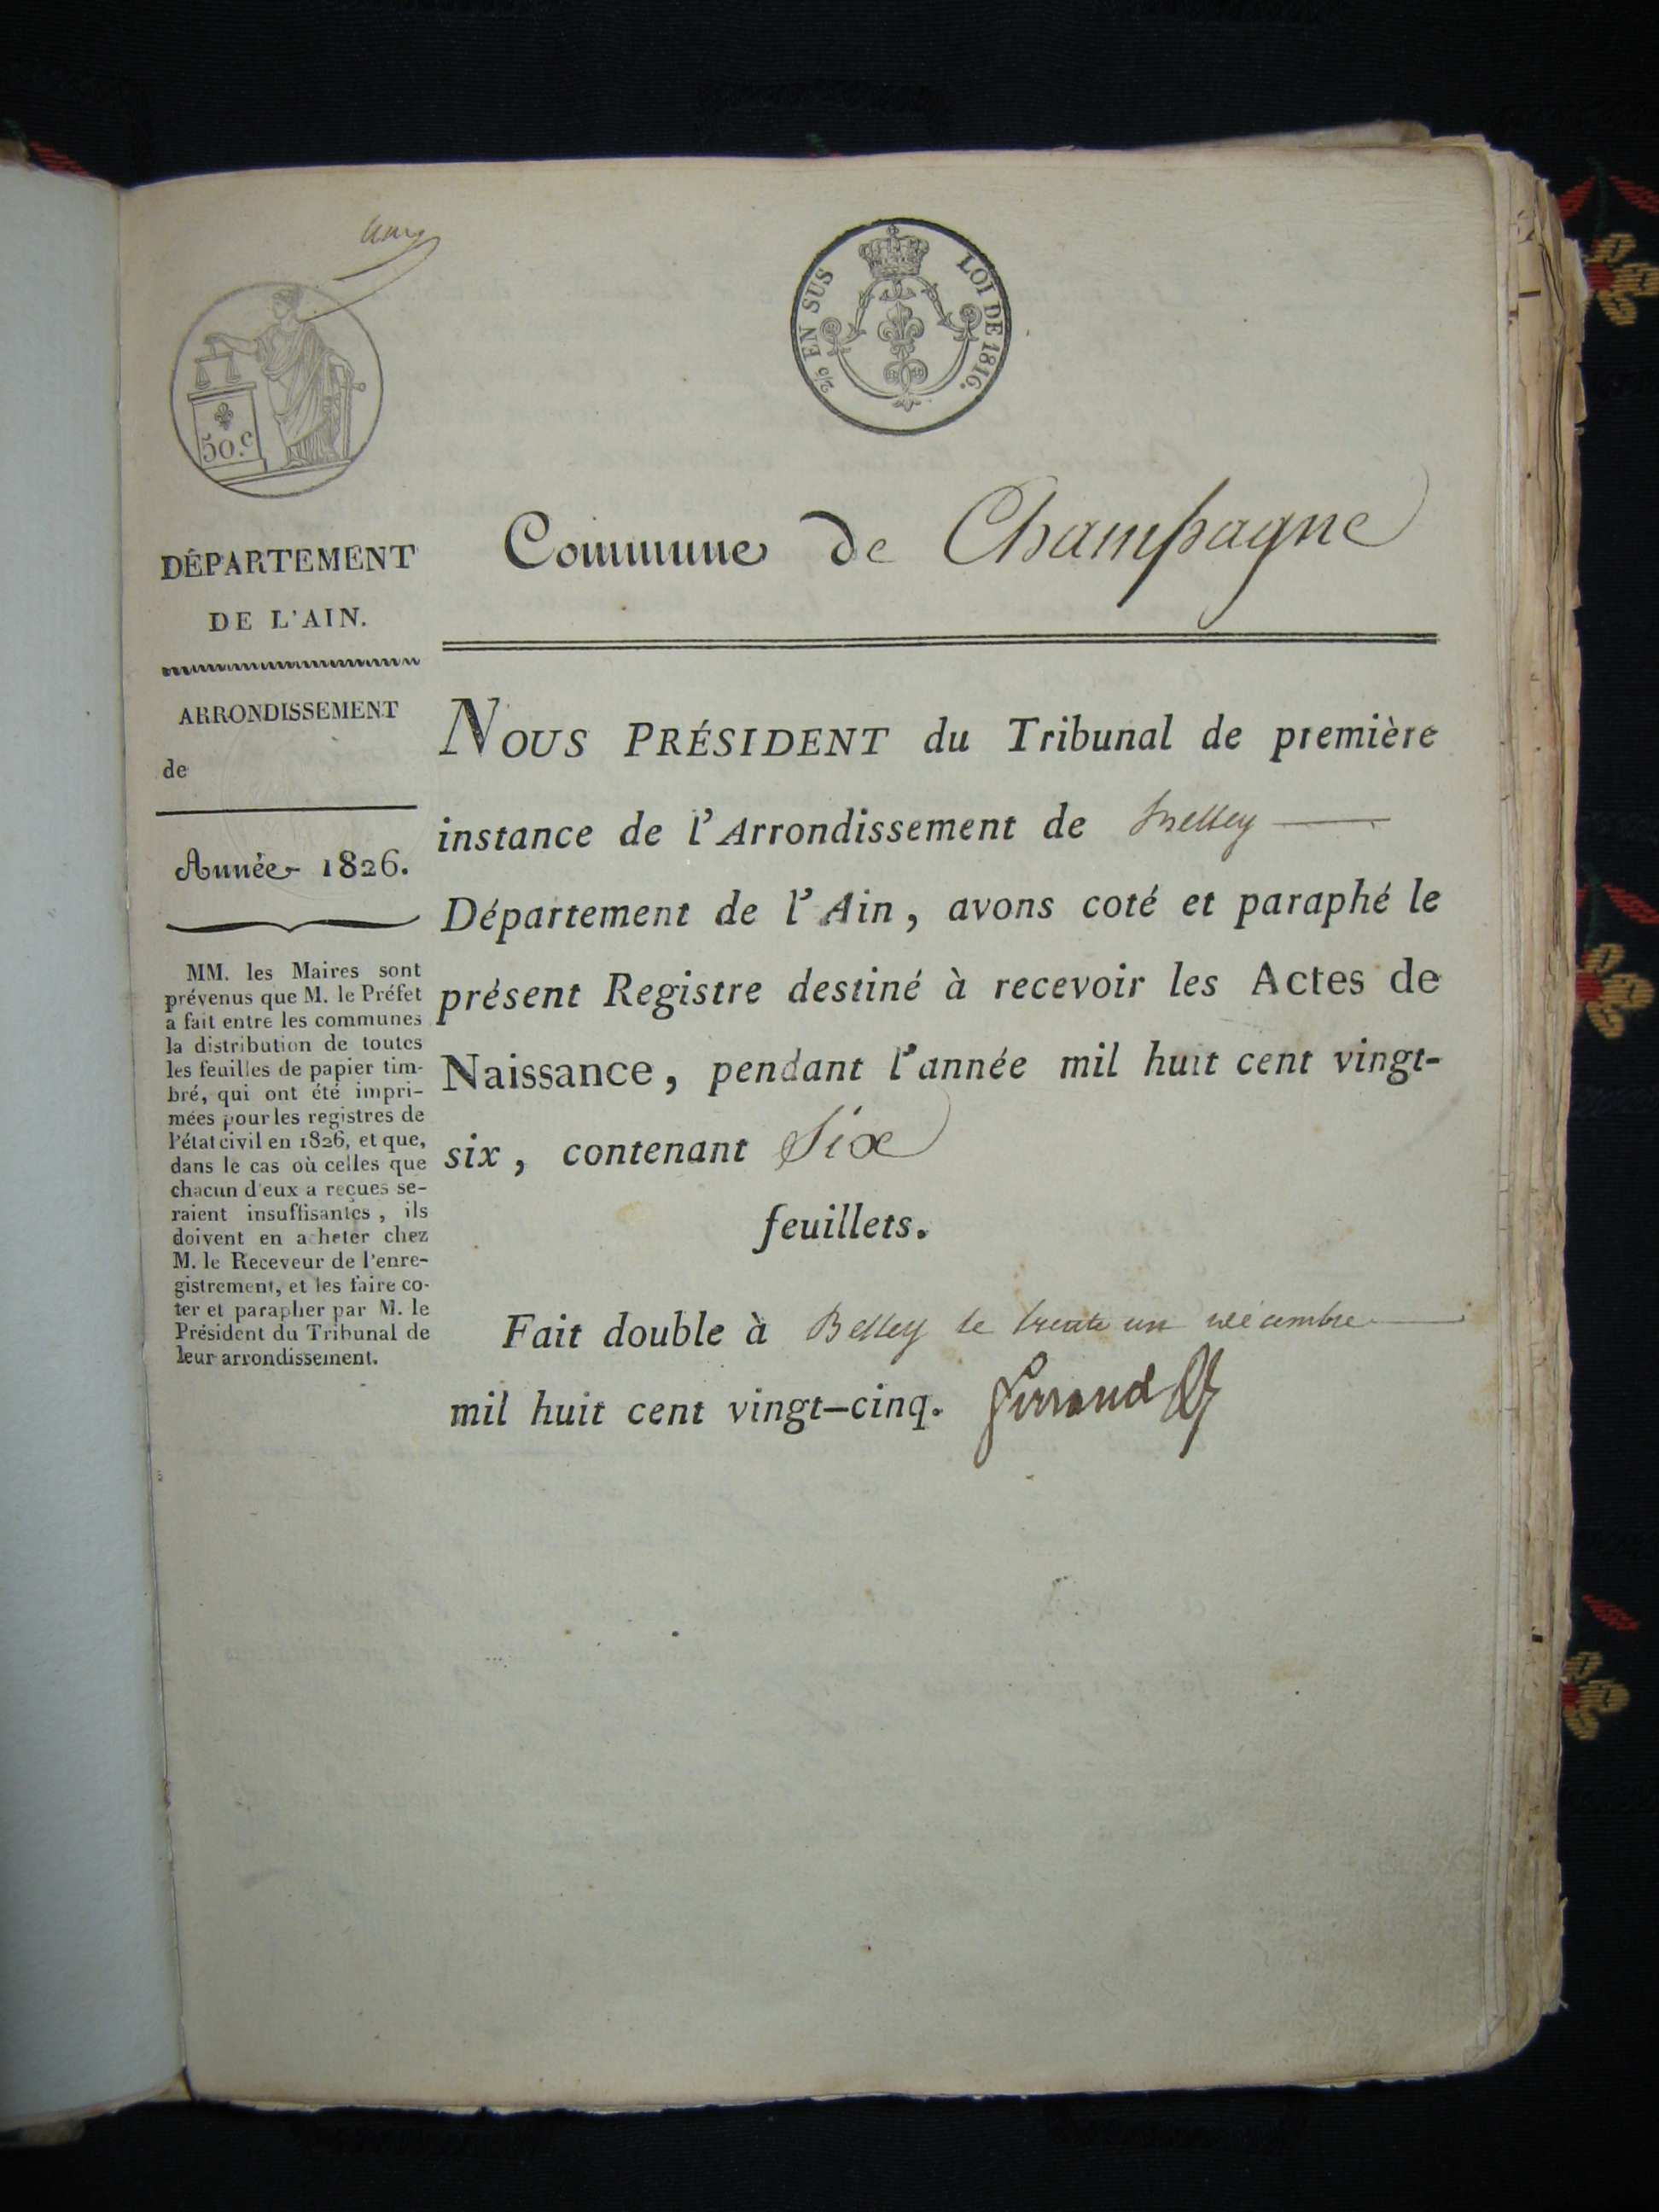 EN SUS
LOI DE 1816.
50.c
Commune de Champagne
DÉPARTEMENT
DE L'AIN.
ARRONDISSEMENT
de
Année 1826.
MM. les Maires sont
prévenus que M. le Préfet
a fait entre les communes
la distribution de toutes
les feuilles de papier tim-
bré, qui ont été impri-
mées pour les registres de
l'état civil en 1826, et que,
dans le cas où celles que
chacun d'eux a reçues se-
raient insuffisantes, ils
doivent en acheter chez
M. le Receveur de l'enre-
gistrement, et les faire co-
ter et parapher par M. le
Président du Tribunal de
leur arrondissement.
NOUS PRÉSIDENT du Tribunal de première
instance de l'Arrondissement de Belley
Département de l'Ain, avons coté et paraphé le
présent Registre destiné à recevoir les Actes de
Naissance, pendant l'année mil huit cent vingt-
six, contenant Six
feuillets.
Fait double à Belley le trente un décembre
mil huit cent vingt-cinq.